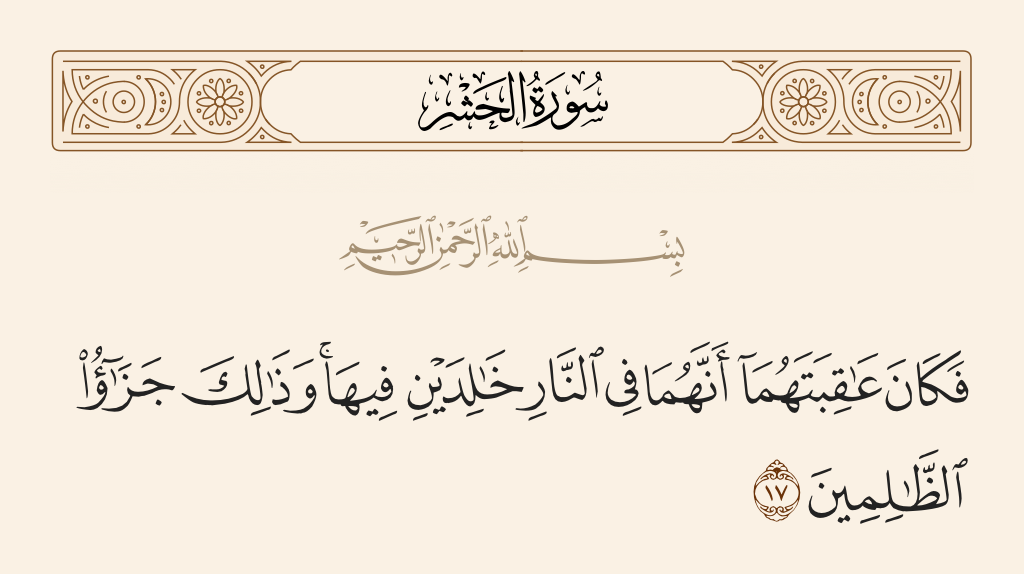 سُورَةُ الحَشۡرِ
بِسۡمِ ٱللَّهِ ٱلرَّحۡمَٰنِ ٱلرَّحِيمِ
فَكَانَ عَٰقِبَتَهُمَآ أَنَّهُمَا فِي ٱلنَّارِ خَٰلِدَيۡنِ فِيهَاۚ وَذَٰلِكَ جَزَٰٓؤُاْ
ٱلظَّٰلِمِينَ ١٧